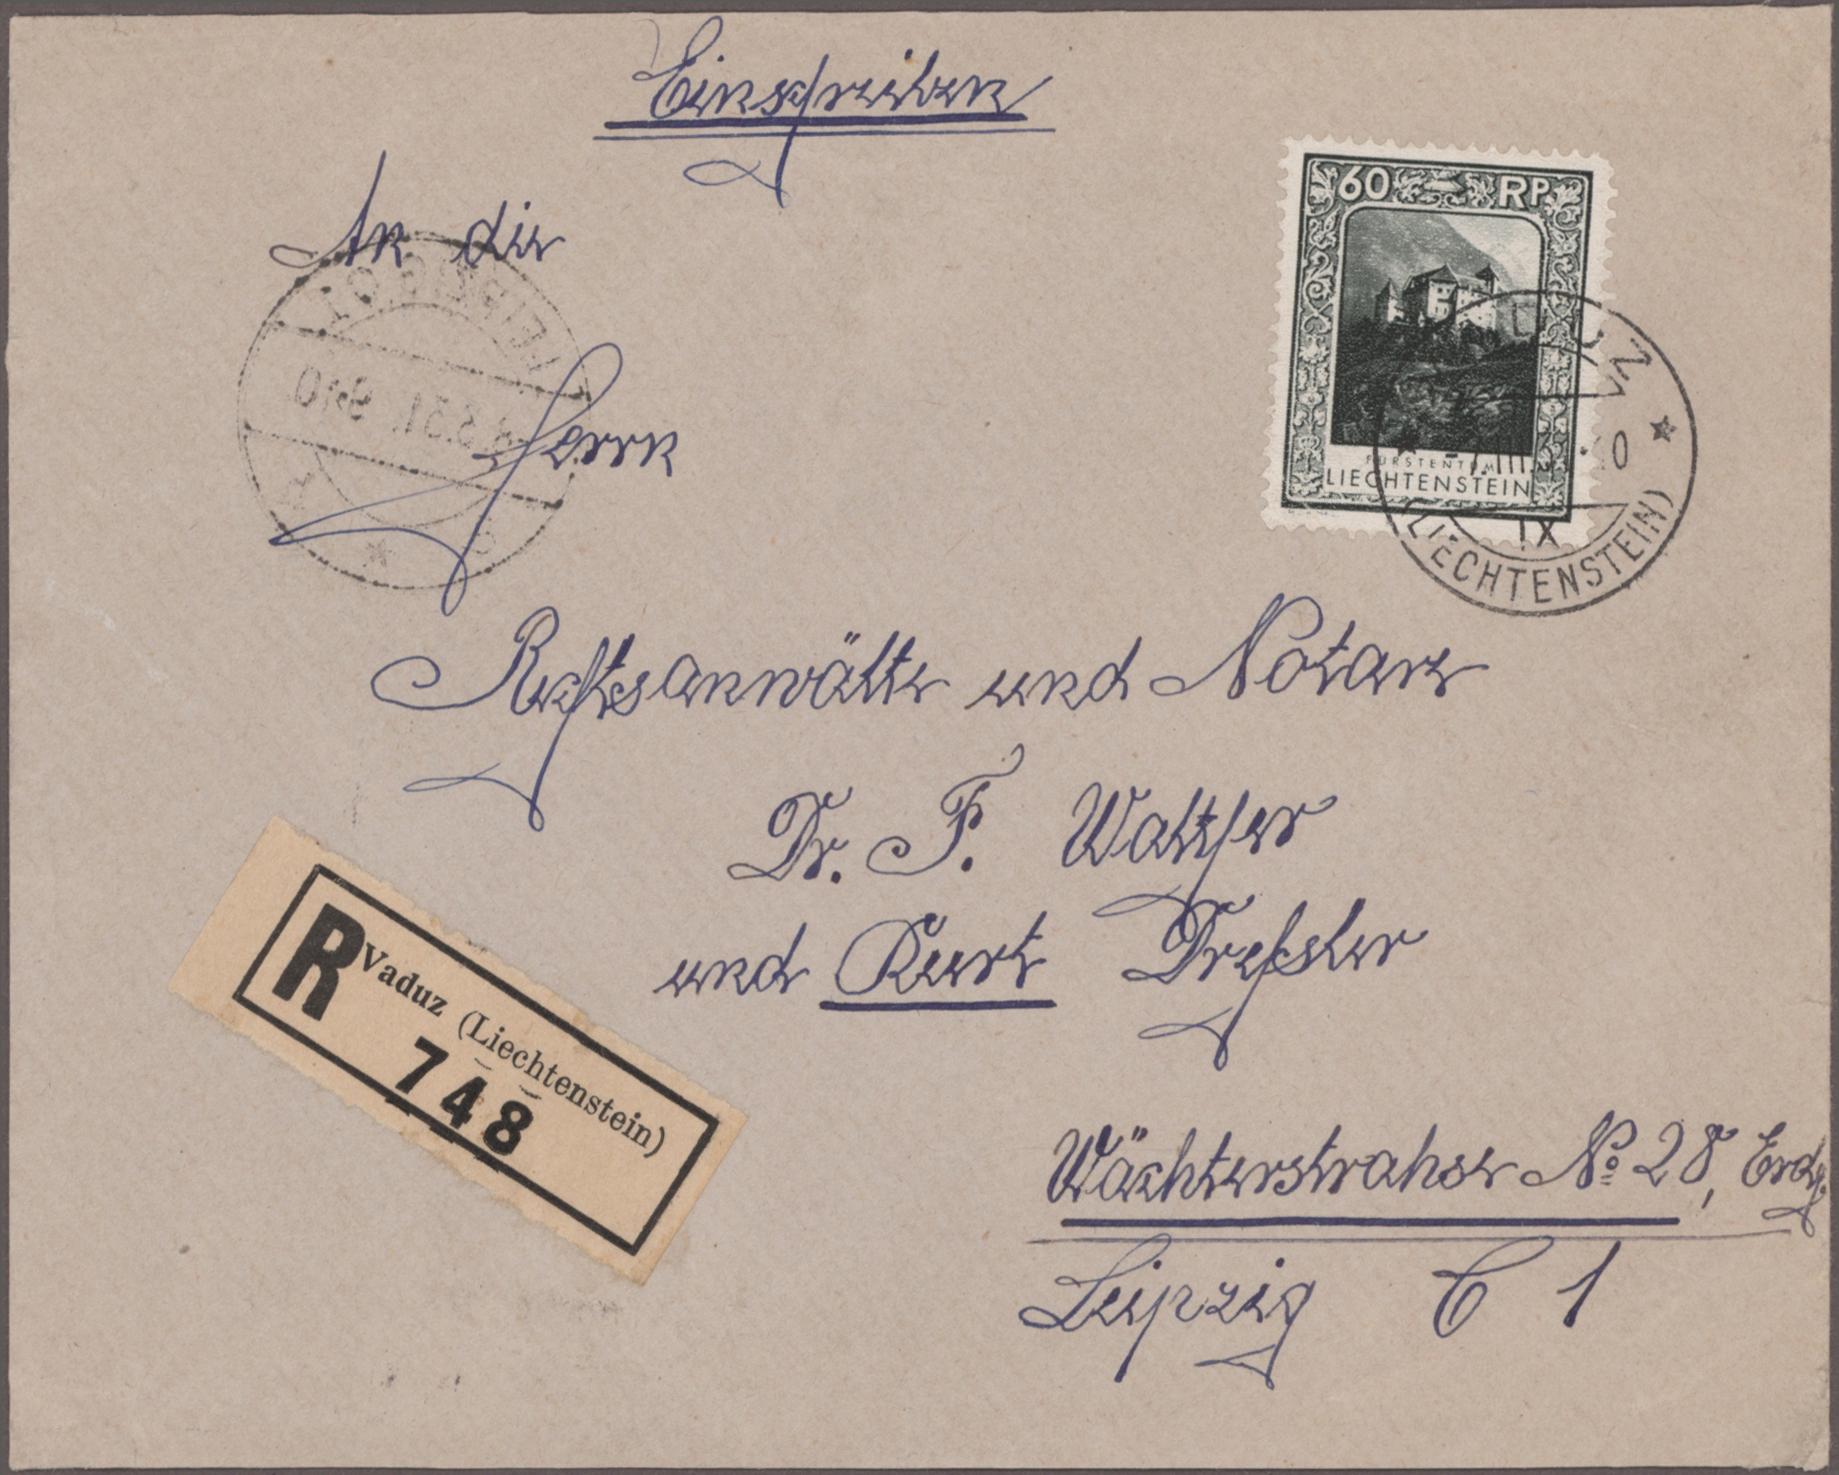 Einschreiben
An die
Herrn
Rechtsanwälte und Notare
Dr. F. Walther
und Kurt Dreßler
Wächterstrahse No 28, Erdg.
Leipzig C 1
60 RP
FÜRSTENTUM
LIECHTENSTEIN
IX
(LIECHTENSTEIN)
R Vaduz (Liechtenstein)
748
LEIPZIG
.5.31. 9-10